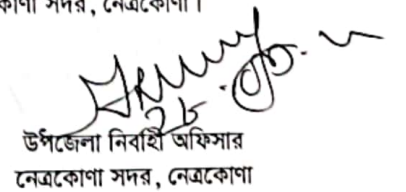 কোণা সদর, নেত্রকোণা।
উপজেলা নির্বাহী অফিসার
নেত্রকোণা সদর, নেত্রকোণা